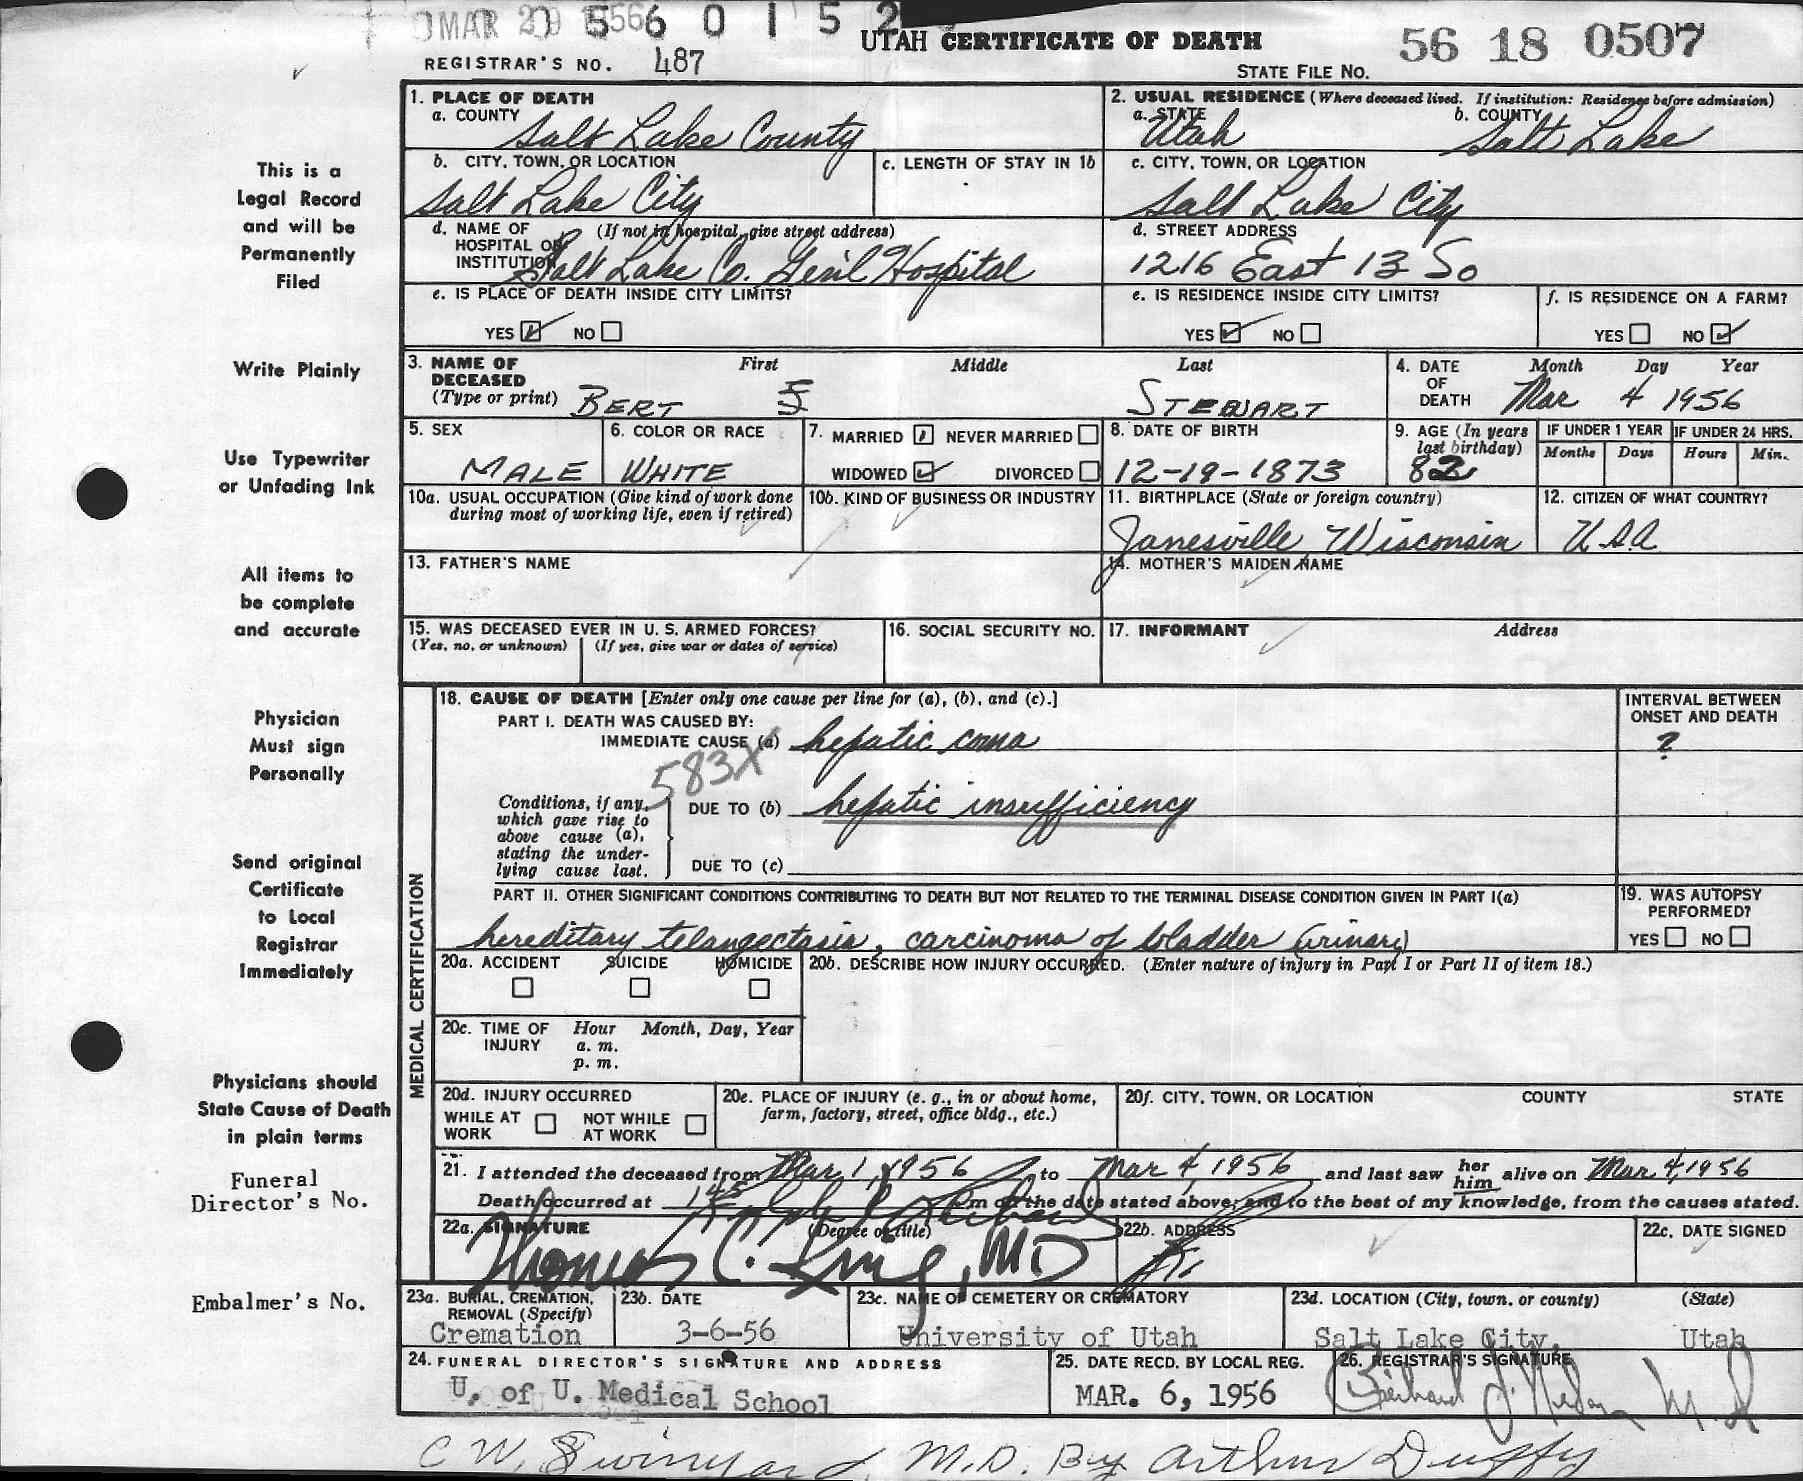 MAR 29 1956
0 5 6 0 1 5 2
UTAH CERTIFICATE OF DEATH
56 18 0507
REGISTRAR'S NO. 487
STATE FILE No.
This is a
Legal Record
and will be
Permanently
Filed
Write Plainly
Use Typewriter
or Unfading Ink
All items to
be complete
and accurate
Physician
Must sign
Personally
Send original
Certificate
to Local
Registrar
Immediately
Physicians should
State Cause of Death
in plain terms
Funeral
Director's No.
Embalmer's No.
1. PLACE OF DEATH
a. COUNTY
Salt Lake County
2. USUAL RESIDENCE (Where deceased lived. If institution: Residence before admission)
a. STATE b. COUNTY
Utah Salt Lake
b. CITY, TOWN, OR LOCATION
Salt Lake City
c. LENGTH OF STAY IN 1b
c. CITY, TOWN, OR LOCATION
Salt Lake City
d. NAME OF (If not in hospital, give street address)
HOSPITAL OR
INSTITUTION
Salt Lake Co. Gen'l Hospital
d. STREET ADDRESS
1216 East 13 So
e. IS PLACE OF DEATH INSIDE CITY LIMITS?
YES NO
e. IS RESIDENCE INSIDE CITY LIMITS?
YES NO
f. IS RESIDENCE ON A FARM?
YES NO
3. NAME OF DECEASED (Type or print)
First Middle Last
BERT STEWART
4. DATE OF DEATH
Month Day Year
Mar 4 1956
5. SEX
MALE
6. COLOR OR RACE
WHITE
7. MARRIED NEVER MARRIED
WIDOWED DIVORCED
8. DATE OF BIRTH
12-19-1873
9. AGE (In years last birthday)
82
IF UNDER 1 YEAR
Months Days
IF UNDER 24 HRS.
Hours Min.
10a. USUAL OCCUPATION (Give kind of work done
during most of working life, even if retired)
10b. KIND OF BUSINESS OR INDUSTRY
11. BIRTHPLACE (State or foreign country)
Janesville, Wisconsin
12. CITIZEN OF WHAT COUNTRY?
USA
13. FATHER'S NAME
14. MOTHER'S MAIDEN NAME
15. WAS DECEASED EVER IN U. S. ARMED FORCES?
(Yes, no, or unknown) (If yes, give war or dates of service)
16. SOCIAL SECURITY NO.
17. INFORMANT Address
MEDICAL CERTIFICATION
18. CAUSE OF DEATH [Enter only one cause per line for (a), (b), and (c).]
PART I. DEATH WAS CAUSED BY:
IMMEDIATE CAUSE (a) hepatic coma
INTERVAL BETWEEN
ONSET AND DEATH
?
583X
Conditions, if any,
which gave rise to
above cause (a),
stating the under-
lying cause last.
DUE TO (b) hepatic insufficiency
DUE TO (c)
PART II. OTHER SIGNIFICANT CONDITIONS CONTRIBUTING TO DEATH BUT NOT RELATED TO THE TERMINAL DISEASE CONDITION GIVEN IN PART I(a)
hereditary telangectasia, carcinoma of bladder (urinary)
19. WAS AUTOPSY
PERFORMED?
YES NO
20a. ACCIDENT SUICIDE HOMICIDE
20b. DESCRIBE HOW INJURY OCCURRED. (Enter nature of injury in Part I or Part II of item 18.)
20c. TIME OF INJURY
Hour Month, Day, Year
a. m.
p. m.
20d. INJURY OCCURRED
WHILE AT WORK NOT WHILE AT WORK
20e. PLACE OF INJURY (e. g., in or about home,
farm, factory, street, office bldg., etc.)
20f. CITY, TOWN, OR LOCATION COUNTY STATE
21. I attended the deceased from Mar 1, 1956 to Mar 4, 1956 and last saw her him alive on Mar 4, 1956
Death occurred at 1 45 m on the date stated above, and to the best of my knowledge, from the causes stated.
22a. SIGNATURE (Degree or title)
Thomas C. King, MD
22b. ADDRESS
22c. DATE SIGNED
23a. BURIAL, CREMATION,
REMOVAL (Specify)
Cremation
23b. DATE
3-6-56
23c. NAME OF CEMETERY OR CREMATORY
University of Utah
23d. LOCATION (City, town, or county) (State)
Salt Lake City, Utah
24. FUNERAL DIRECTOR'S SIGNATURE AND ADDRESS
U. of U. Medical School
25. DATE RECD. BY LOCAL REG.
MAR. 6, 1956
26. REGISTRAR'S SIGNATURE
C W. Swinyard, M.D. By Arthur Duffy